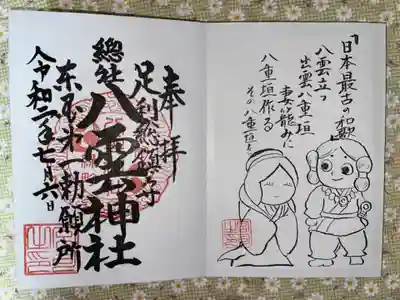 「日本最古の和歌」
八雲立つ
出雲八重垣
妻籠みに
八重垣作る
その八重垣を
奉拝
足利総鎮守
總社
八雲神社
東武第一勅願所
令和二年七月六日